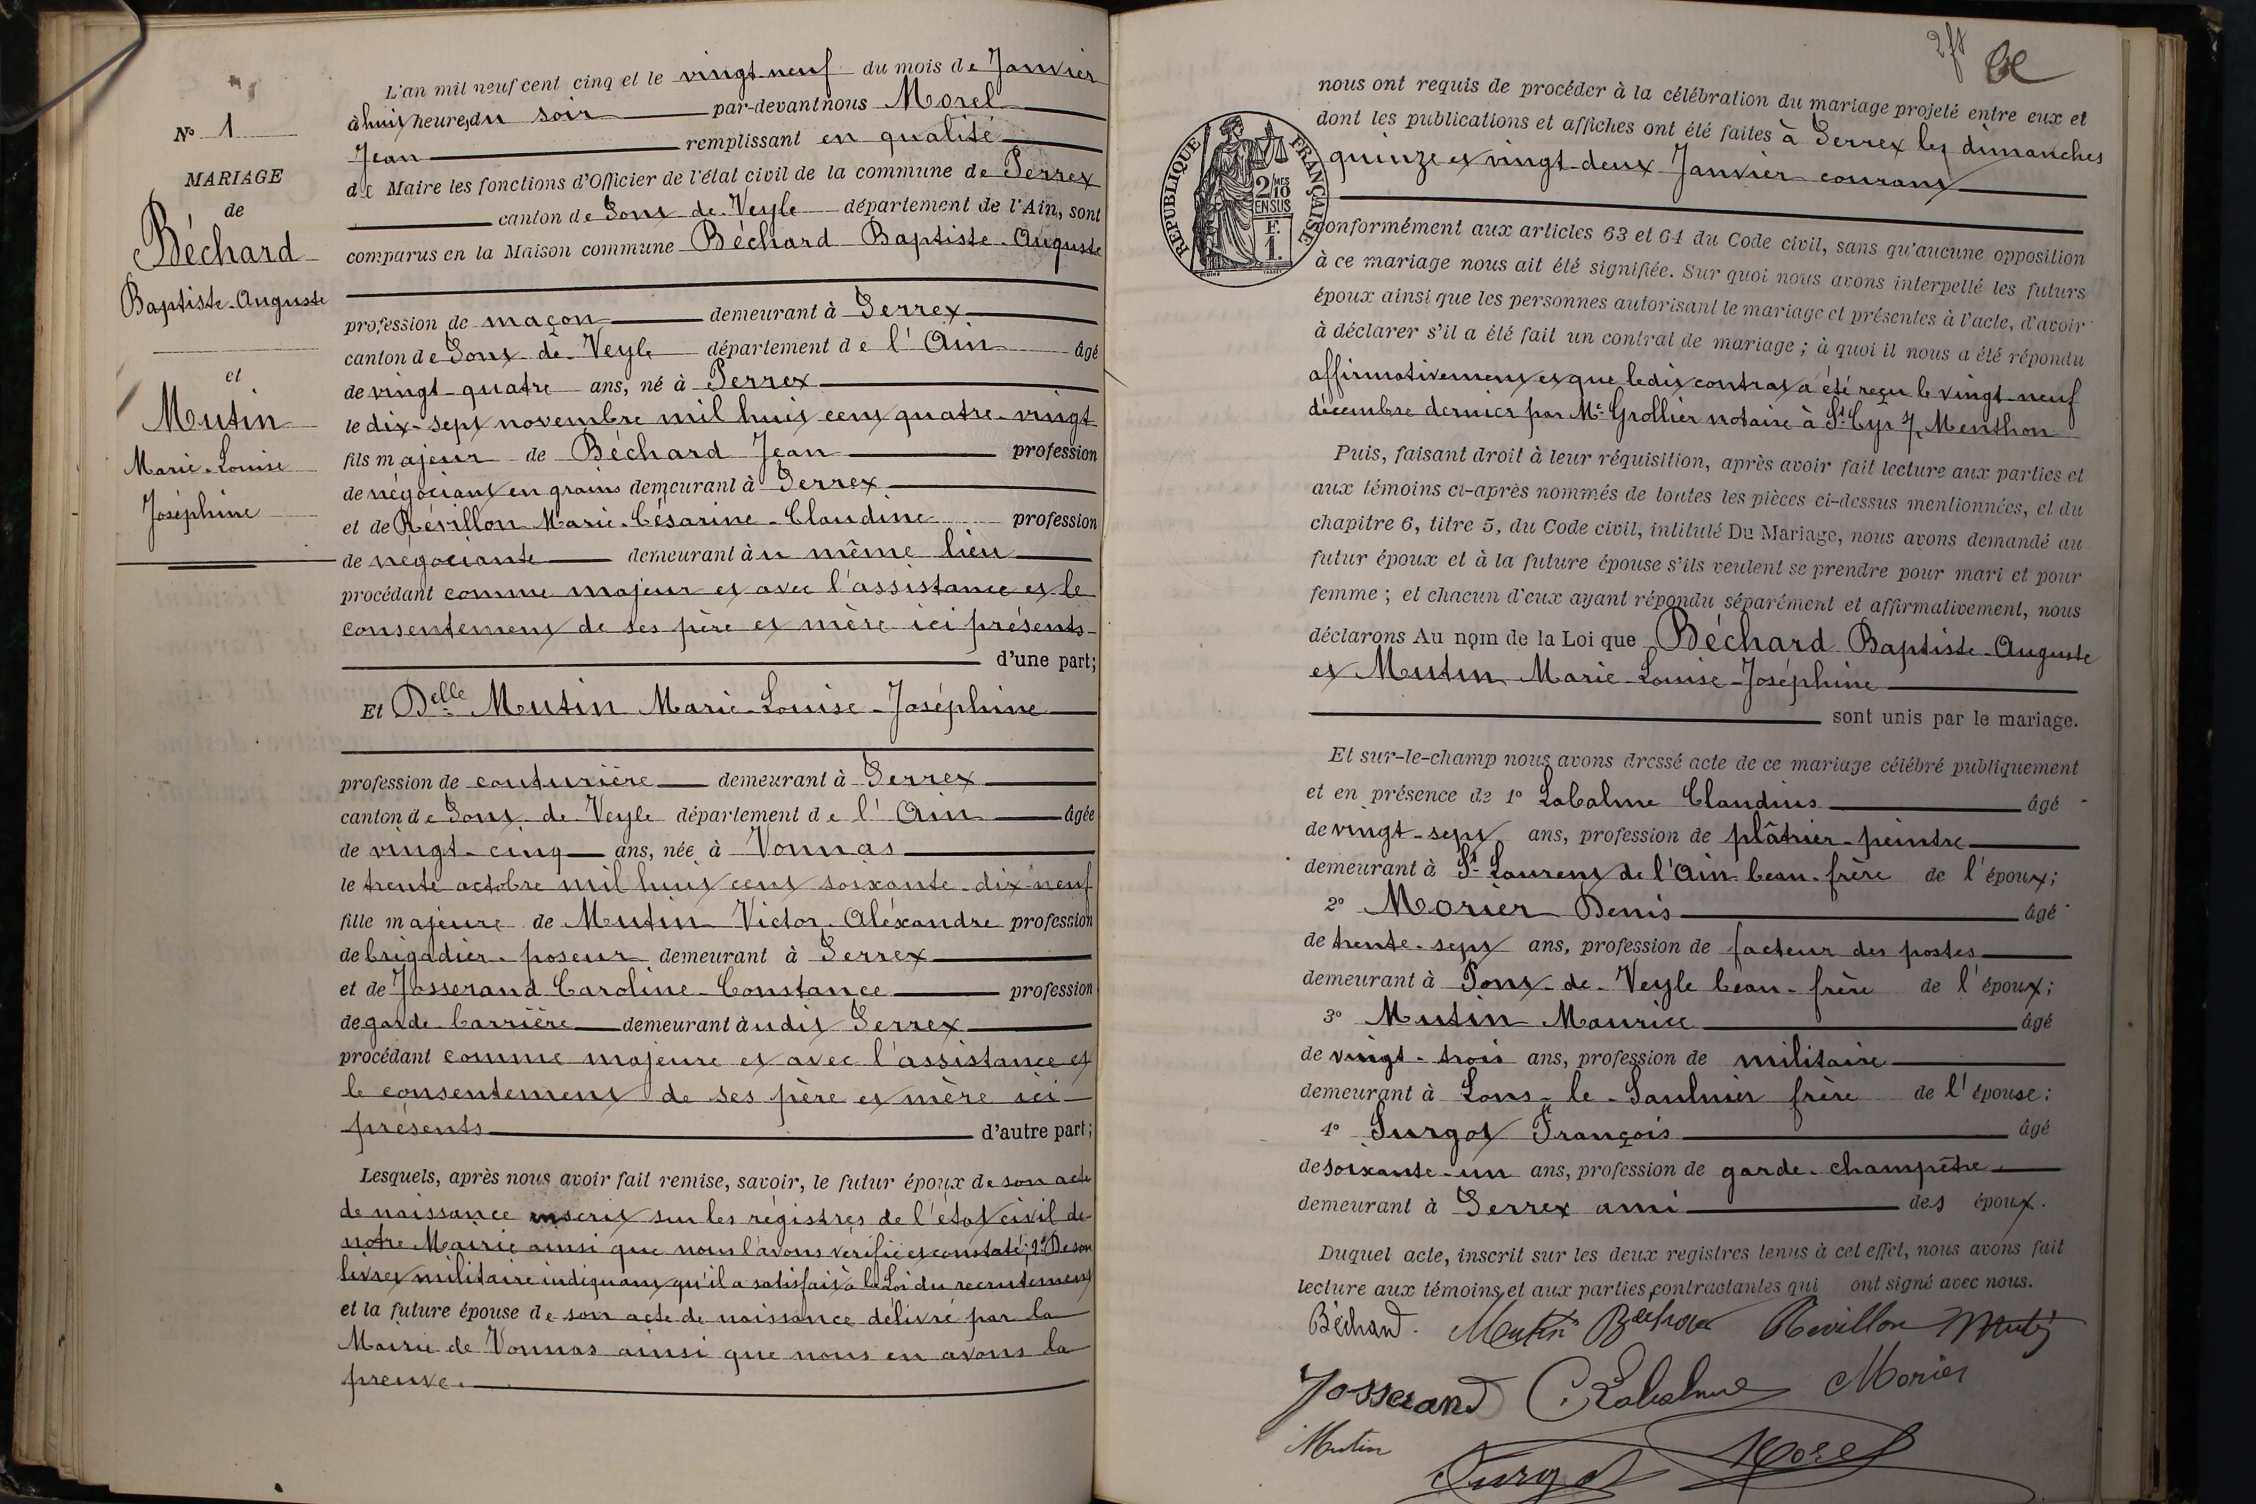 N° 1
MARIAGE
de
Béchard
Baptiste-Auguste
et
Mutin
Marie-Louise
Joséphine
L'an mil neuf cent cinq et le vingt-neuf du mois de Janvier
à huit heures du soir par-devant nous Morel
Jean remplissant en qualité
de Maire les fonctions d'Officier de l'état civil de la commune de Perrex
canton de Pont-de-Veyle département de l'Ain, sont
comparus en la Maison commune Béchard Baptiste-Auguste
profession de maçon demeurant à Perrex
canton de Pont-de-Veyle département de l'Ain âgé
de vingt-quatre ans, né à Perrex
le dix-sept novembre mil huit cent quatre-vingt
fils majeur de Béchard Jean profession
de négociant en grains demeurant à Perrex
et de Révillon Marie-Césarine-Claudine profession
de négociante demeurant à u même lieu
procédant comme majeur et avec l'assistance et le
consentement de ses père et mère ici présents
d'une part;
Et Delle Mutin Marie-Louise-Joséphine
profession de couturière demeurant à Perrex
canton de Pont-de-Veyle département de l'Ain âgée
de vingt-cinq ans, née à Vonnas
le trente octobre mil huit cent soixante-dix-neuf
fille majeure de Mutin Victor-Aléxandre profession
de brigadier-poseur demeurant à Perrex
et de Josserand Caroline-Constance profession
de garde-barrière demeurant à udit Perrex
procédant comme majeure et avec l'assistance et
le consentement de ses père et mère ici
présents d'autre part;
Lesquels, après nous avoir fait remise, savoir, le futur époux de son acte
de naissance inscrit sur les régistres de l'état civil de
notre Mairie ainsi que nous l'avons vérifié et constaté; 2° De son
livret militaire indiquant qu'il a satisfait à la Loi du recrutement
et la future épouse de son acte de naissance délivré par la
Mairie de Vonnas ainsi que nous en avons la
preuve.
2 ft
RÉPUBLIQUE FRANÇAISE
2/10 MES
EN SUS
F.
1.
nous ont requis de procéder à la célébration du mariage projeté entre eux et
dont les publications et affiches ont été faites à Perrex les dimanches
quinze et vingt-deux Janvier courant
conformément aux articles 63 et 64 du Code civil, sans qu'aucune opposition
à ce mariage nous ait été signifiée. Sur quoi nous avons interpellé les futurs
époux ainsi que les personnes autorisant le mariage et présentes à l'acte, d'avoir
à déclarer s'il a été fait un contrat de mariage; à quoi il nous a été répondu
affirmativement et que ledit contrat a été reçu le vingt-neuf
décembre dernier par Me Grollier notaire à St Cyr s/ Menthon
Puis, faisant droit à leur réquisition, après avoir fait lecture aux parties et
aux témoins ci-après nommés de toutes les pièces ci-dessus mentionnées, et du
chapitre 6, titre 5, du Code civil, intitulé Du Mariage, nous avons demandé au
futur époux et à la future épouse s'ils veulent se prendre pour mari et pour
femme; et chacun d'eux ayant répondu séparément et affirmativement, nous
déclarons Au nom de la Loi que Béchard Baptiste-Auguste
et Mutin Marie-Louise-Joséphine
sont unis par le mariage.
Et sur-le-champ nous avons dressé acte de ce mariage célébré publiquement
et en présence de 1° Labalme Claudius âgé
de vingt-sept ans, profession de plâtrier-peintre
demeurant à St Laurent de l'Ain beau-frère de l'époux;
2° Morier Denis âgé
de trente-sept ans, profession de facteur des postes
demeurant à Pont-de-Veyle beau-frère de l'époux;
3° Mutin Maurice âgé
de vingt-trois ans, profession de militaire
demeurant à Lons-le-Saulnier frère de l'épouse;
4° Surgot François âgé
de soixante-un ans, profession de garde-champêtre
demeurant à Perrex ami des époux.
Duquel acte, inscrit sur les deux registres tenus à cet effet, nous avons fait
lecture aux témoins et aux parties contractantes qui ont signé avec nous.
Béchard. Mutin Révillon Mutin
Josserand C. Labalme Morier
Mutin Surgot Morel